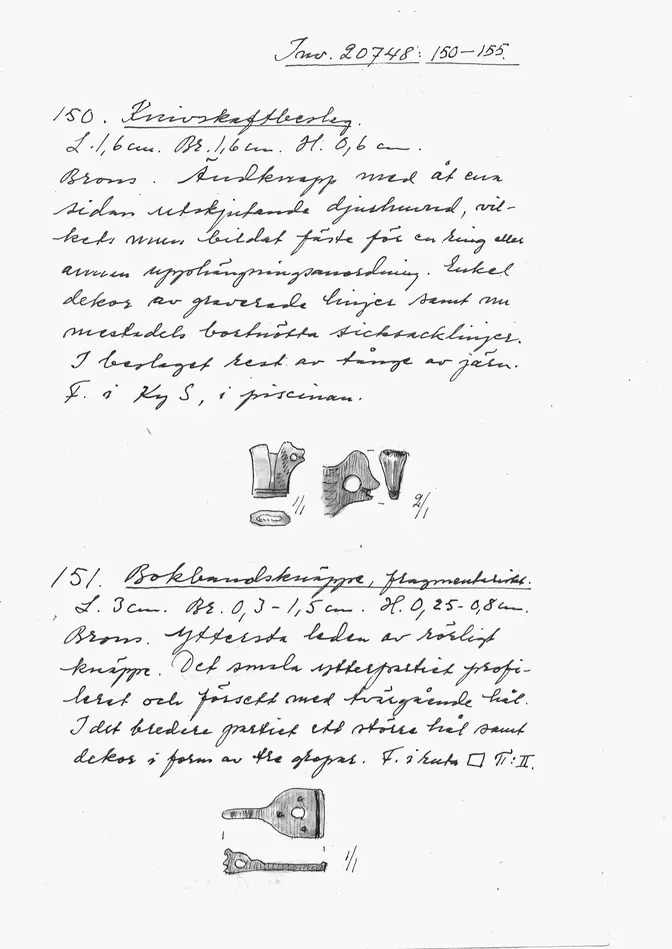 Inv. 20748: 150-155.
150. Knivskaftbeslag.
L. 1,6 cm. Br. 1,6 cm. H. 0,6 cm.
Brons. Ändknapp med åt ena
sidan utskjutande djurhuvud, vil-
kets mun bildat fäste för en ring eller
annan upphängningsanordning. Enkel
dekor av graverade linjer samt nu
mestadels bortnötta sicksacklinjer.
I beslaget rest av tånge av järn.
F. i Ky S, i piscinan.
1/1
2/1
151. Bokbandsknäppe, fragmentariskt.
L. 3 cm. Br. 0,3-1,5 cm. H. 0,25-0,8 cm.
Brons. Yttersta leden av rörligt
knäppe. Det smala ytterpartiet profi-
lerat och försett med tvärgående hål.
I det bredere partiet ett större hål samt
dekor i form av tre gropar. F. i ruta □ Π:II.
1/1